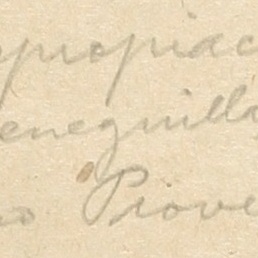 ypropiac
eneguilla
no Prove